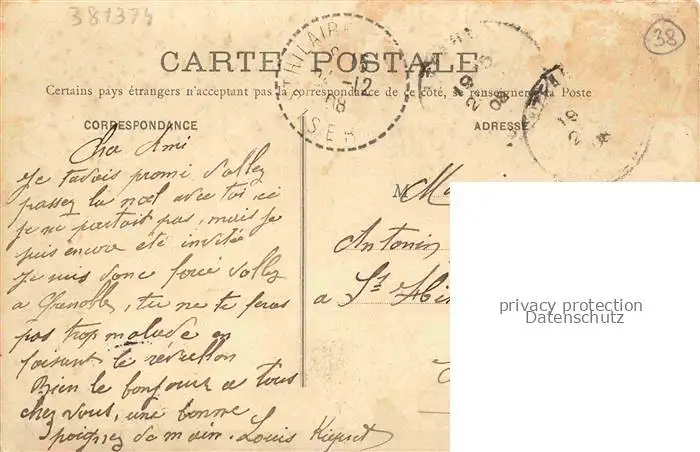 381374
38
CARTE POSTALE
Certains pays étrangers n'acceptant pas la correspondance de ce côté, se renseignement à la Poste
CORRESPONDANCE
ADRESSE
ST HILAIRE
-12
08
ISERE
19
2
08
19
2
08
Cher Ami
Je tavais promi d'allez
passez la noel avec toi, si
je ne partait pas, mais je
suis encore été invitée
Je suis donc forcé d'allez
a Grenoble, tu ne te feras
pas trop malade en
faisant le réveillon
Bien le bonjour a tous
chez vous, une bonne
poignez de main. Louis
M
Antonin
a St Hi
privacy protection
Datenschutz